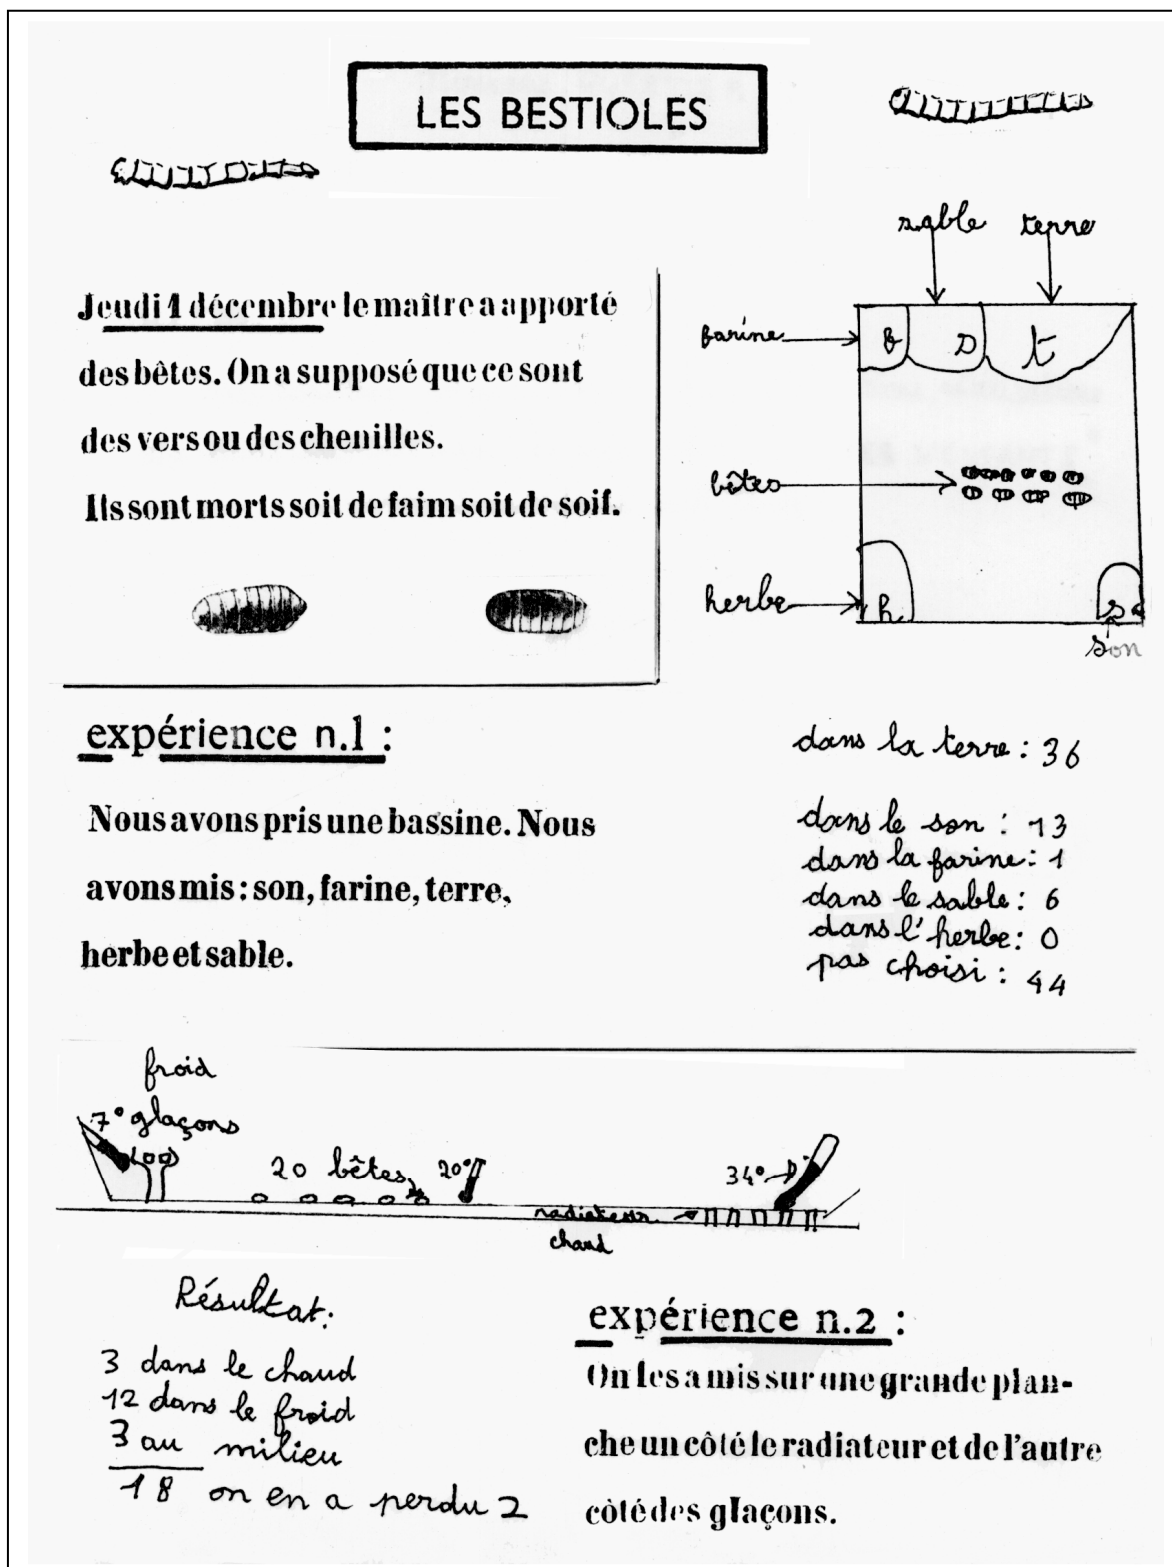 LES BESTIOLES
Jeudi 1 décembre le maître a apporté
des bêtes. On a supposé que ce sont
des vers ou des chenilles.
Ils sont morts soit de faim soit de soif.
sable terre
farine f s t
bêtes
herbe h s
son
expérience n.1 :
Nous avons pris une bassine. Nous
avons mis : son, farine, terre,
herbe et sable.
dans la terre : 36
dans le son : 13
dans la farine : 1
dans le sable : 6
dans l'herbe : 0
pas choisi : 44
froid
7° glaçons
20 bêtes 20° 34°
radiateur
chaud
Résultat :
3 dans le chaud
12 dans le froid
3 au milieu
18 on en a perdu 2
expérience n.2 :
On les a mis sur une grande plan-
che un côté le radiateur et de l'autre
côté des glaçons.